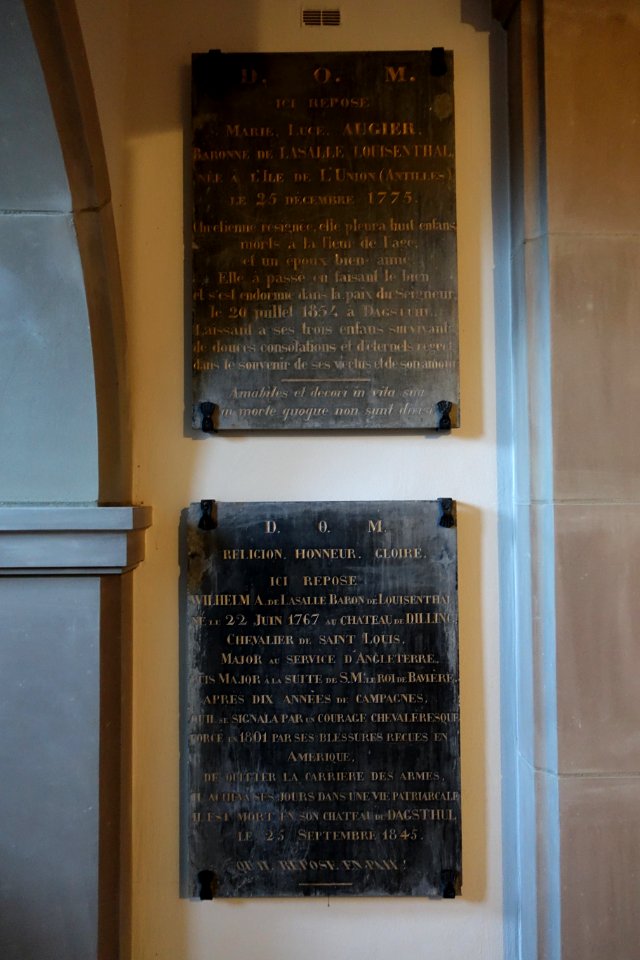 D. O. M.
ICI REPOSE
MARIE. LUCE. AUGIER,
BARONNE DE LASALLE LOUISENTHAL,
NÉE A L'ILE DE L'UNION (ANTILLES)
LE 25 DECEMBRE 1775.
Chrétienne resignée, elle pleura huit enfans,
morts à la fleur de l'age,
et un époux bien aimé,
ELLE a passé en faisant le bien
et s'est endormie dans la paix du Seigneur,
le 20 juillet 1854 à DAGSTUHL.
Laissant a ses trois enfans survivant
de douces consolations et d'éternels regret
dans le souvenir de ses vertus et de son amour
Amabiles et decori in vita sua
in morte quoque non sunt divisi
D. O. M.
RELIGION. HONNEUR. GLOIRE.
ICI REPOSE
WILHELM A. DE LASALLE BARON DE LOUISENTHAL
NÉ LE 22 JUIN 1767 AU CHATEAU DE DILLING,
CHEVALIER DE SAINT LOUIS.
MAJOR AU SERVICE D'ANGLETERRE,
MAJOR À LA SUITE DE S.M. LE ROI DE BAVIERE,
APRES DIX ANNÉES DE CAMPAGNES,
QU'IL SE SIGNALA PAR UN COURAGE CHEVALERESQUE
FORCÉ EN 1801 PAR SES BLESSURES RECUES EN
AMERIQUE,
DE QUITTER LA CARRIERE DES ARMES,
IL ACHEVA SES JOURS DANS UNE VIE PATRIARCALE
IL EST MORT EN SON CHATEAU DE DAGSTHUL
LE 25 SEPTEMBRE 1845.
QU'IL REPOSE EN PAIX!